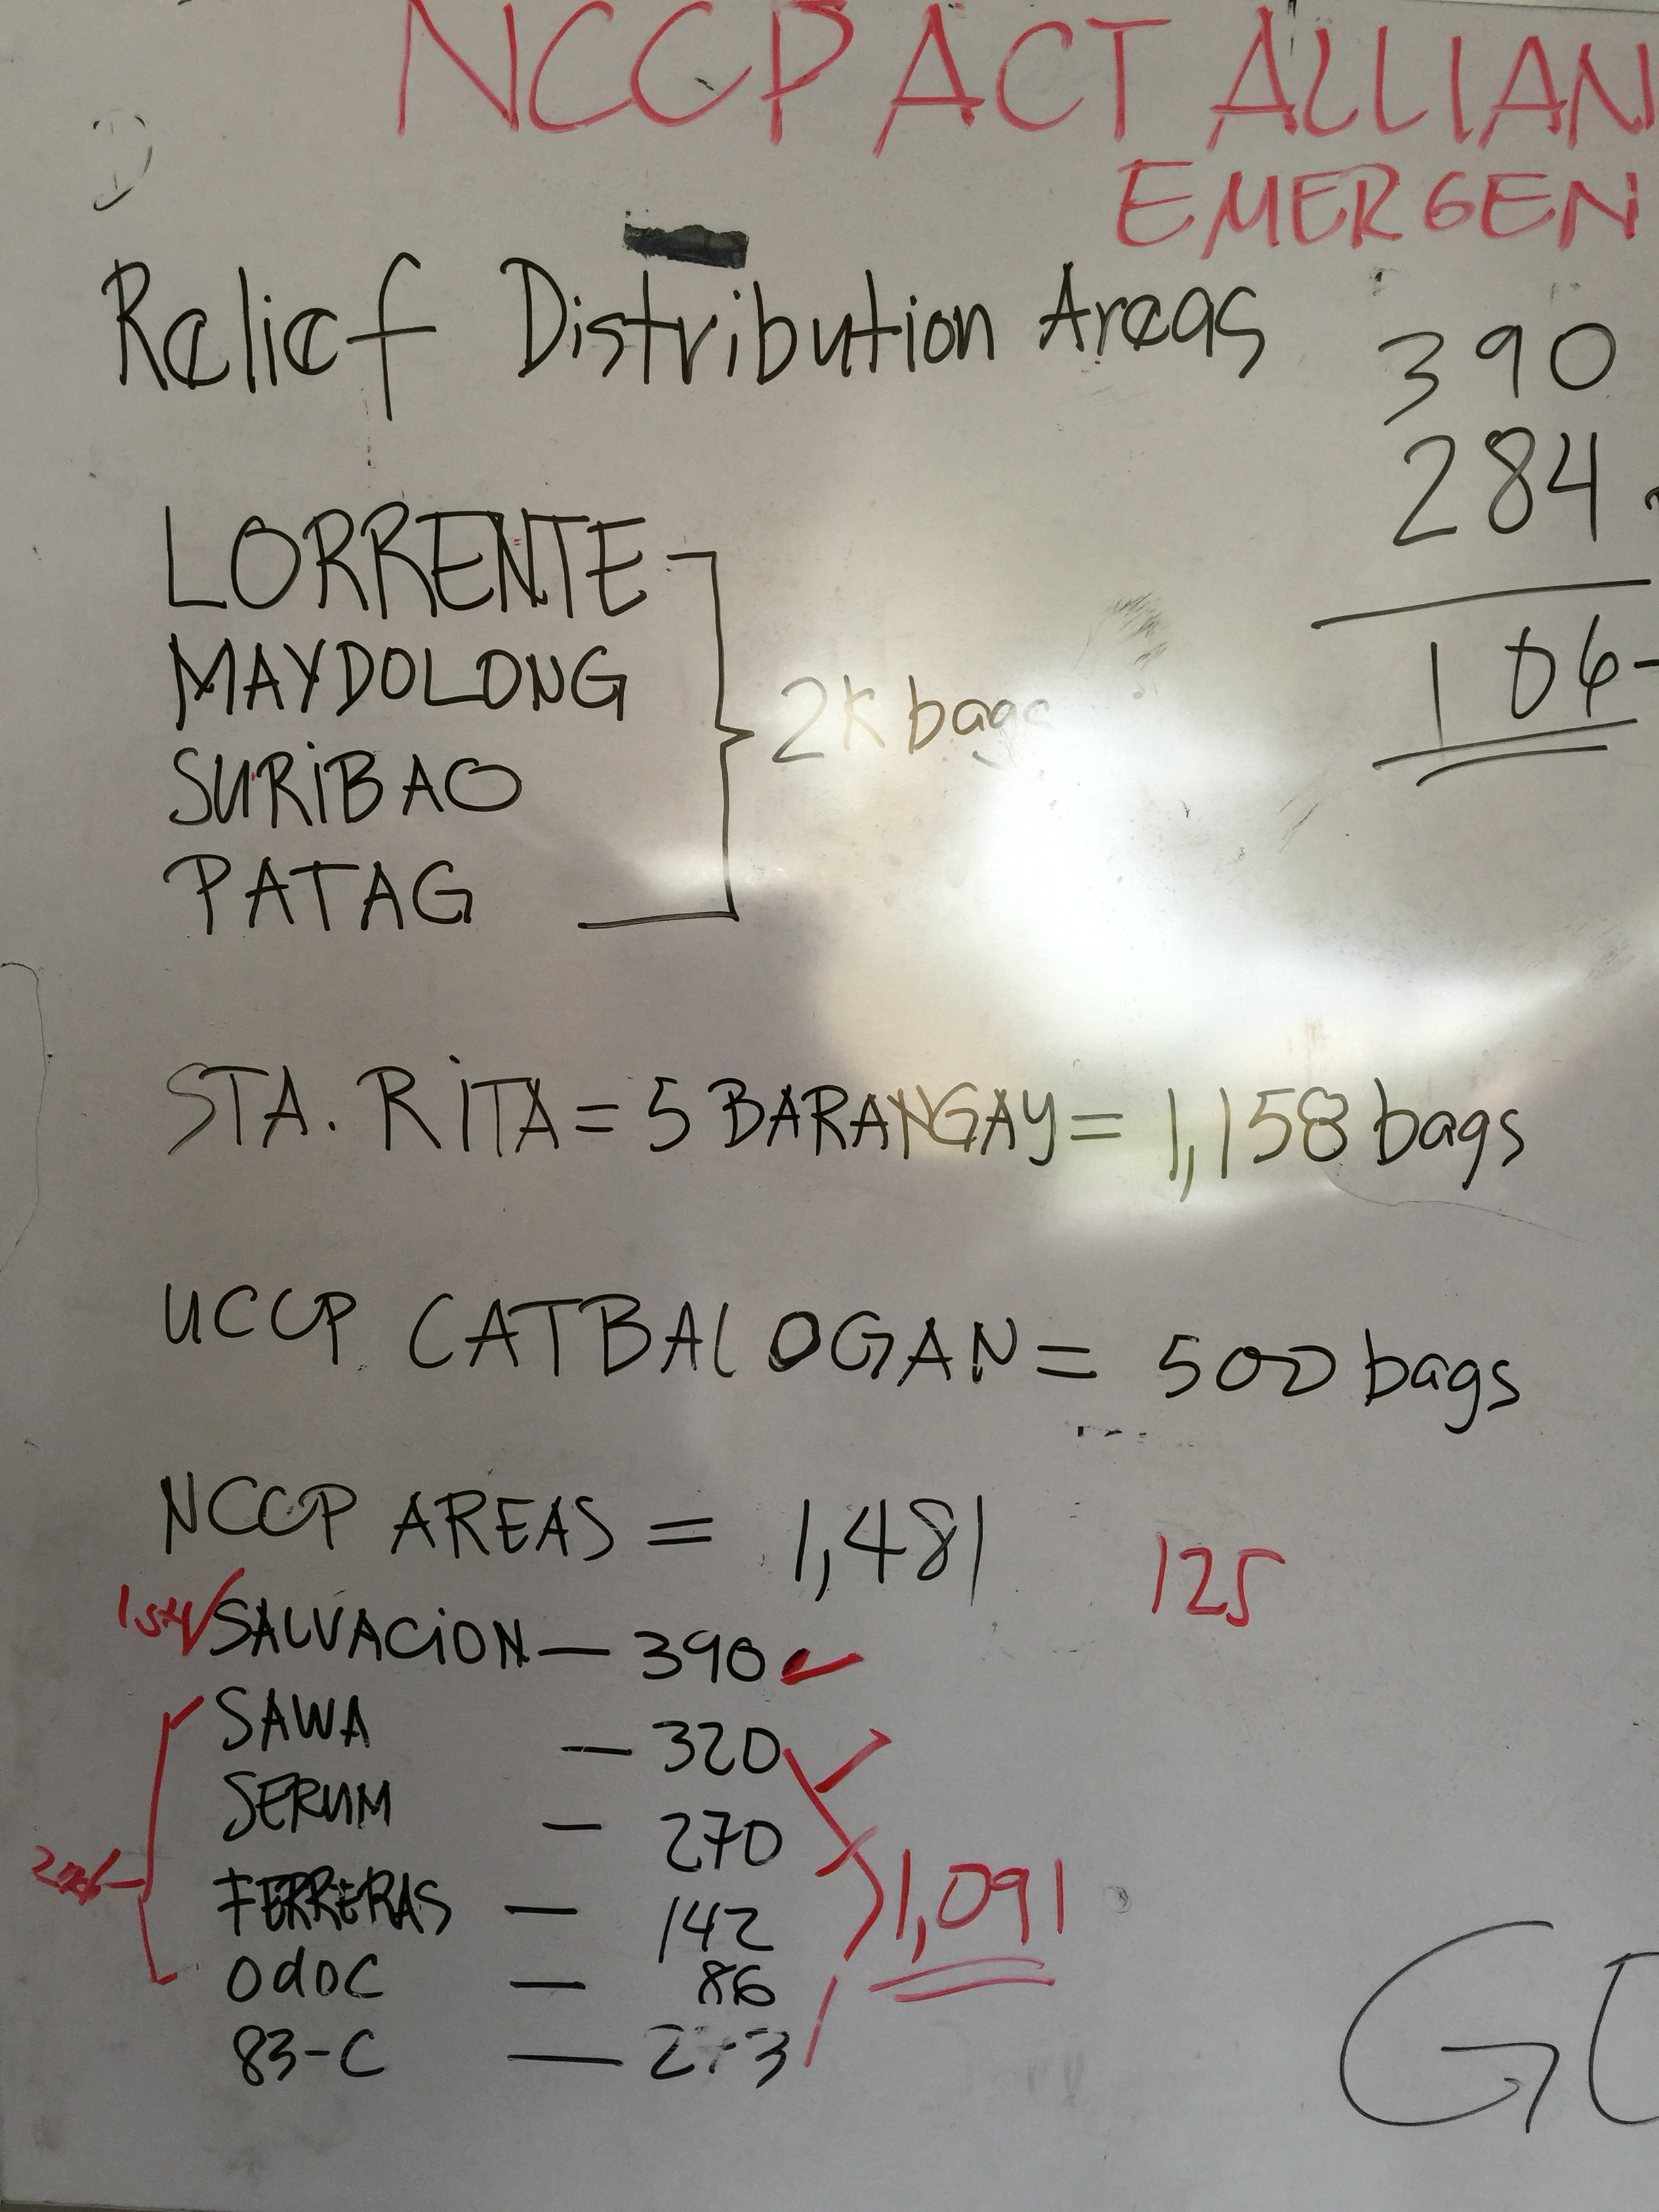 NCCP ACT ALLIAN
EMERGEN
Relief Distribution Areas
390
284
106
LORRENTE
MAYDOLONG
SURiBAO
PATAG
2K bags
STA. RiTA = 5 BARANGAY = 1,158 bags
UCCP CATBALOGAN = 500 bags
NCCP AREAS = 1,481
125
1st SALVACiON — 390
SAWA — 320
SERUM — 270
FERRERAS — 142
OdOC — 86
83-C —
1,091
GO